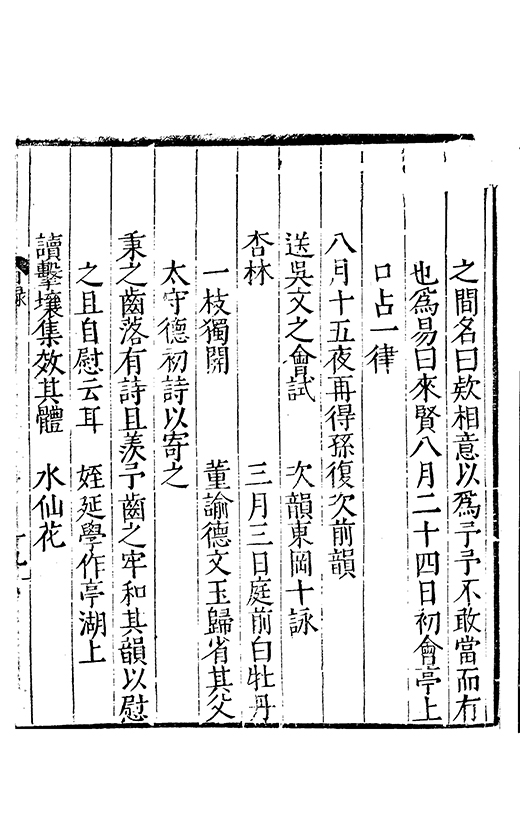 之間名曰欵相意以爲予予不敢當而有
也爲易曰來賢八月二十四日初會亭上
口占一律
八月十五夜再得孫復次前韻
送吳文之會試　次韻東岡十詠
杏林　三月三日庭前白牡丹
一枝獨開　董諭德文玉歸省其父
太守德初詩以寄之
秉之齒落有詩且羡予齒之牢和其韻以慰
之且自慰云耳　姪延學作亭湖上
讀擊壤集效其體　水仙花
目録